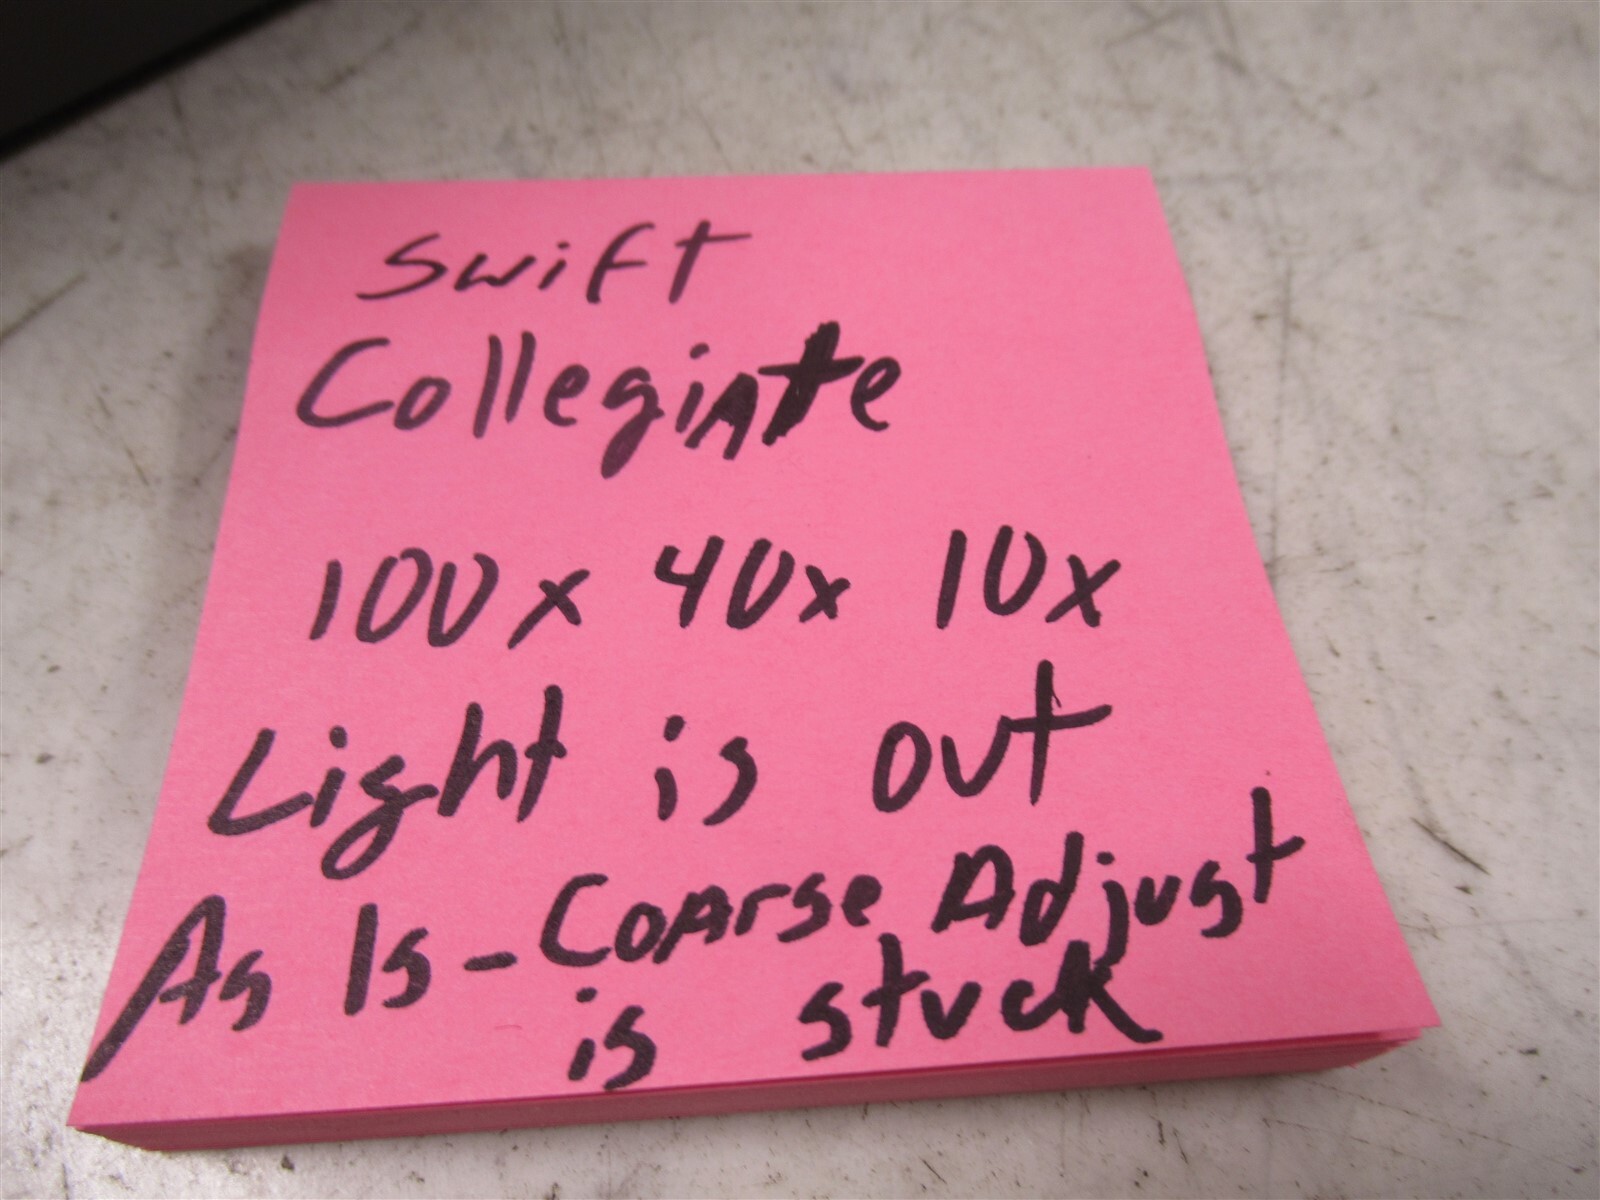 Swift
Collegiate
100x 40x 10x
Light is out
As Is - Coarse Adjust
is stuck